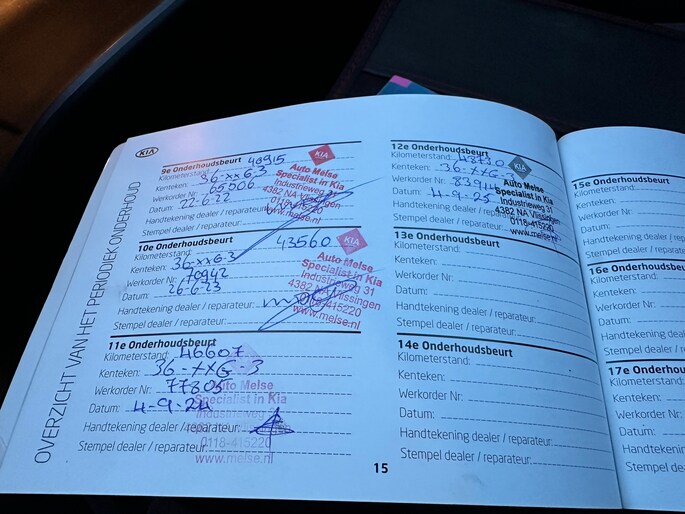 KIA
OVERZICHT VAN HET PERIODIEK ONDERHOUD
9e Onderhoudsbeurt
Kilometerstand: 40915
Kenteken: 36-XXG-3
Werkorder Nr: 65006
Datum: 22-6-22
Handtekening dealer / reparateur:
Stempel dealer / reparateur:
KIA
Auto Melse
Specialist in Kia
Industrieweg 31
4382 NA Vlissingen
0118-415220
www.melse.nl
10e Onderhoudsbeurt
Kilometerstand: 43560
Kenteken: 36-XXG-3
Werkorder Nr: 70942
Datum: 26-6-23
Handtekening dealer / reparateur:
Stempel dealer / reparateur:
KIA
Auto Melse
Specialist in Kia
Industrieweg 31
4382 NA Vlissingen
0118-415220
www.melse.nl
11e Onderhoudsbeurt
Kilometerstand: 46607
Kenteken: 36-XXG-3
Werkorder Nr: 77805
Datum: 4-9-24
Handtekening dealer / reparateur:
Stempel dealer / reparateur:
Auto Melse
Specialist in Kia
Industrieweg
0118-415220
www.melse.nl
12e Onderhoudsbeurt
Kilometerstand: 48730
Kenteken: 36-XXG-3
Werkorder Nr: 83914
Datum: 4-9-25
Handtekening dealer / reparateur:
Stempel dealer / reparateur:
KIA
Auto Melse
Specialist in Kia
Industrieweg 31
4382 NA Vlissingen
0118-415220
www.melse.nl
13e Onderhoudsbeurt
Kilometerstand:
Kenteken:
Werkorder Nr:
Datum:
Handtekening dealer / reparateur:
Stempel dealer / reparateur:
14e Onderhoudsbeurt
Kilometerstand:
Kenteken:
Werkorder Nr:
Datum:
Handtekening dealer / reparateur:
Stempel dealer / reparateur:
15
15e Onderhoudsbeurt
Kilometerstand:
Kenteken:
Werkorder Nr:
Datum:
Handtekening dealer
Stempel dealer / re
16e Onderhoudsbeurt
Kilometerstand:
Kenteken:
Werkorder Nr:
Datum:
Handtekening dea
Stempel dealer /
17e Onderhoudsb
Kilometerstand:
Kenteken:
Werkorder Nr:
Datum:
Handtekening d
Stempel deale